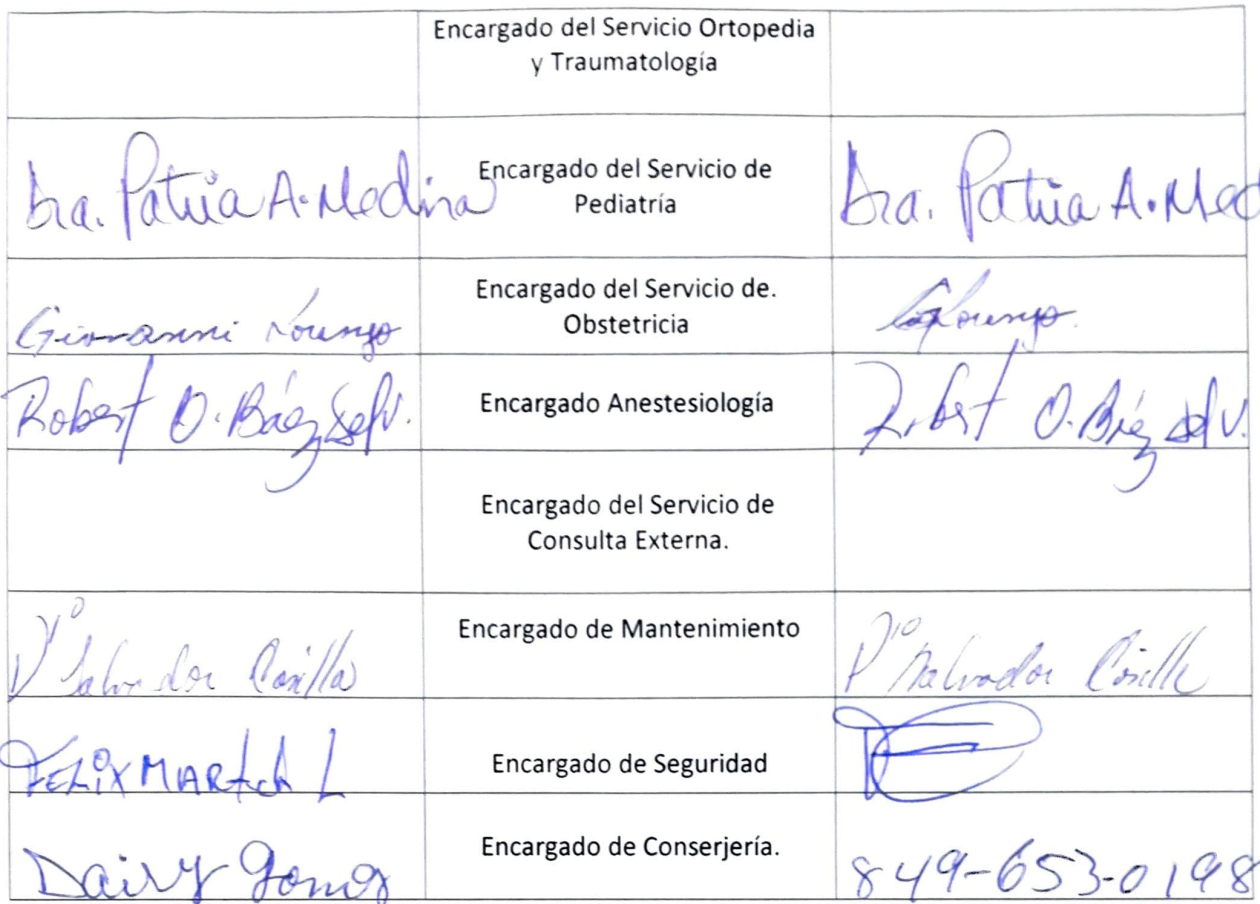 Encargado del Servicio Ortopedia
y Traumatología
Dra. Patria A. Medina
Encargado del Servicio de
Pediatría
Dra. Patria A. Med
Giovanni
Encargado del Servicio de.
Obstetricia
Robert O. Báez
Encargado Anestesiología
Robert O. Báez
Encargado del Servicio de
Consulta Externa.
Salvador
Encargado de Mantenimiento
Salvador
FELIX
Encargado de Seguridad
Daisy
Encargado de Conserjería.
849-653-0198